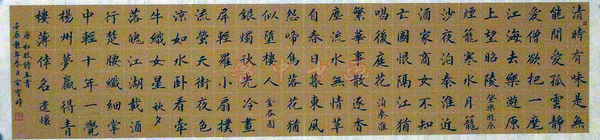 清時有味是無
能閒愛孤雲靜
愛僧欲把一麾
江海去樂遊原
上望昭陵 登樂遊原
煙籠寒水月籠
沙夜泊秦淮近
酒家商女不知
亡國恨隔江猶
唱後庭花 泊秦淮
繁華事散逐香
塵流水無情草
自春日暮東風
怨啼鳥落花猶
似墮樓人 金谷園
銀燭秋光冷畫
屏輕羅小扇撲
流螢天街夜色
涼如水卧看牽
牛織女星 秋夕
落魄江湖載酒
行楚腰纖細掌
中輕十年一覺
楊州夢贏得青
樓薄倖名 遣懷
唐杜牧詩五首